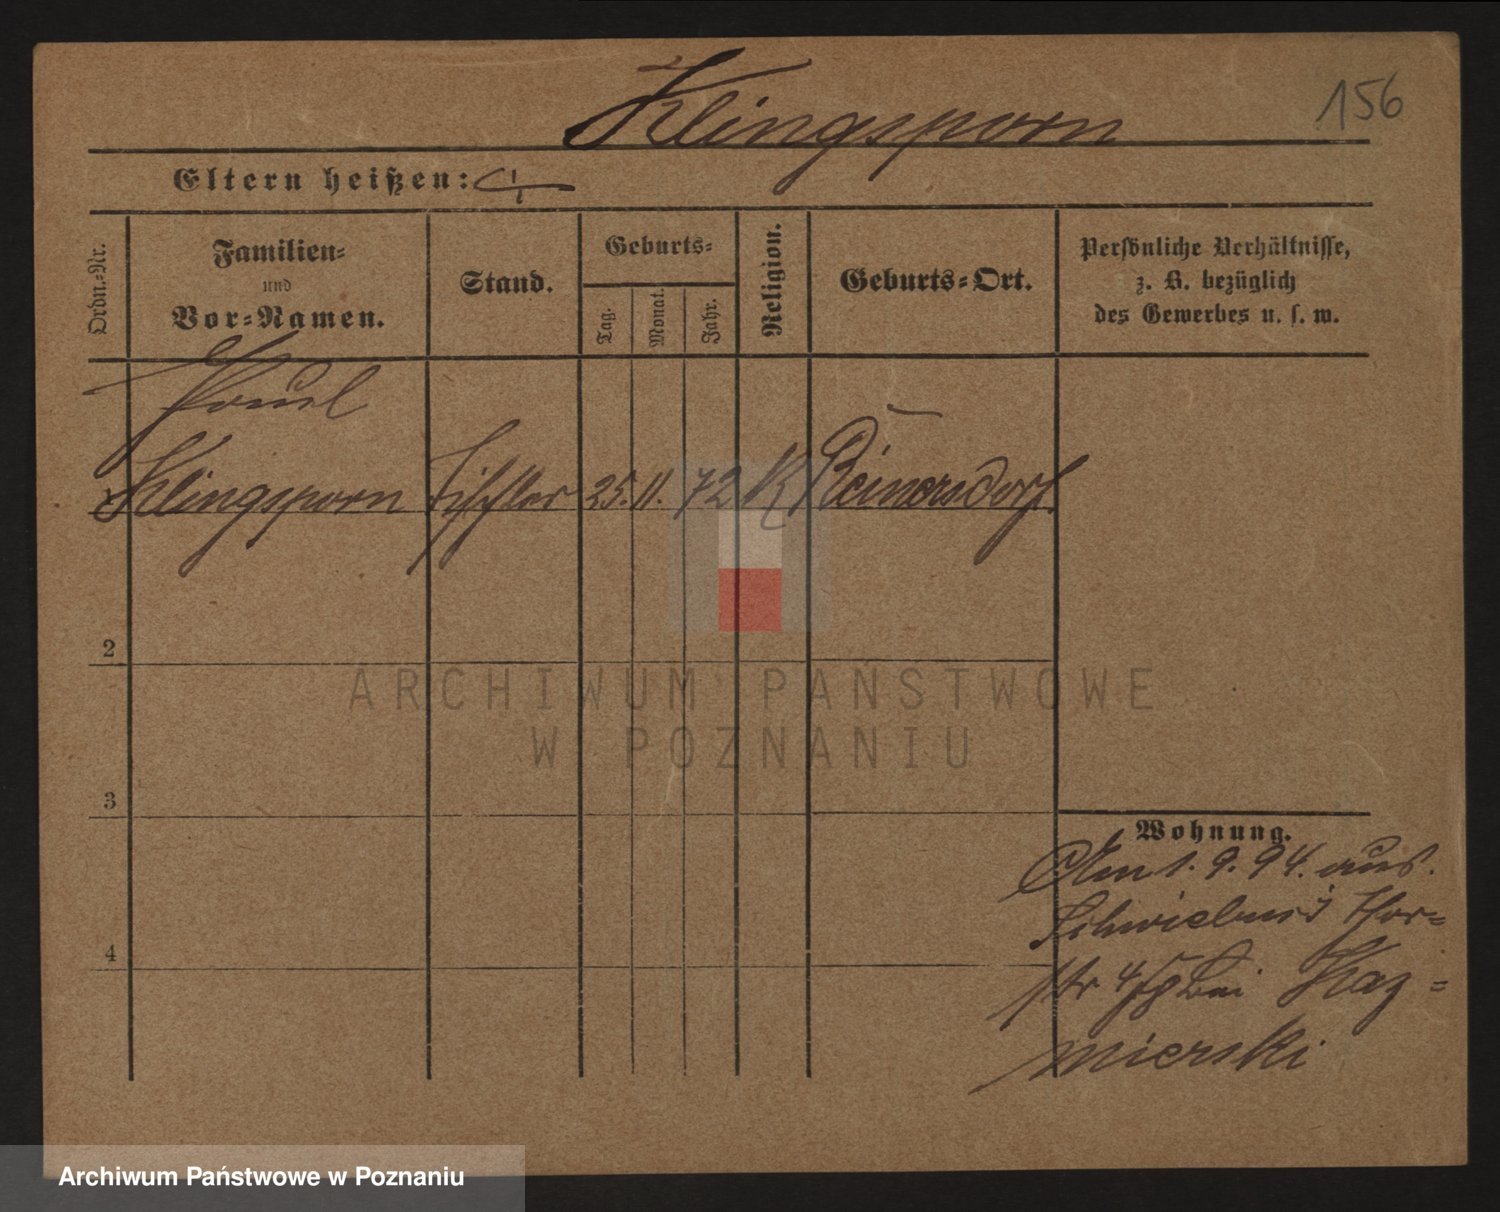 Klingsporn
156
Eltern heißen:
Ordn.-Nr.
Familien-
und
Vor-Namen.
Stand.
Geburts-
Tag.
Monat.
Jahr.
Religion.
Geburts-Ort.
Persönliche Verhältnisse,
z. B. bezüglich
des Gewerbes u. s. w.
Paul
Klingsporn Tischler 25. 11. 72 K Reinersdorf.
2
3
4
Wohnung.
Am 1. 9. 94. aus.
Schwiebus
str 4 bei Kaz=
mierski
ARCHIWUM PAŃSTWOWE
W POZNANIU
Archiwum Państwowe w Poznaniu